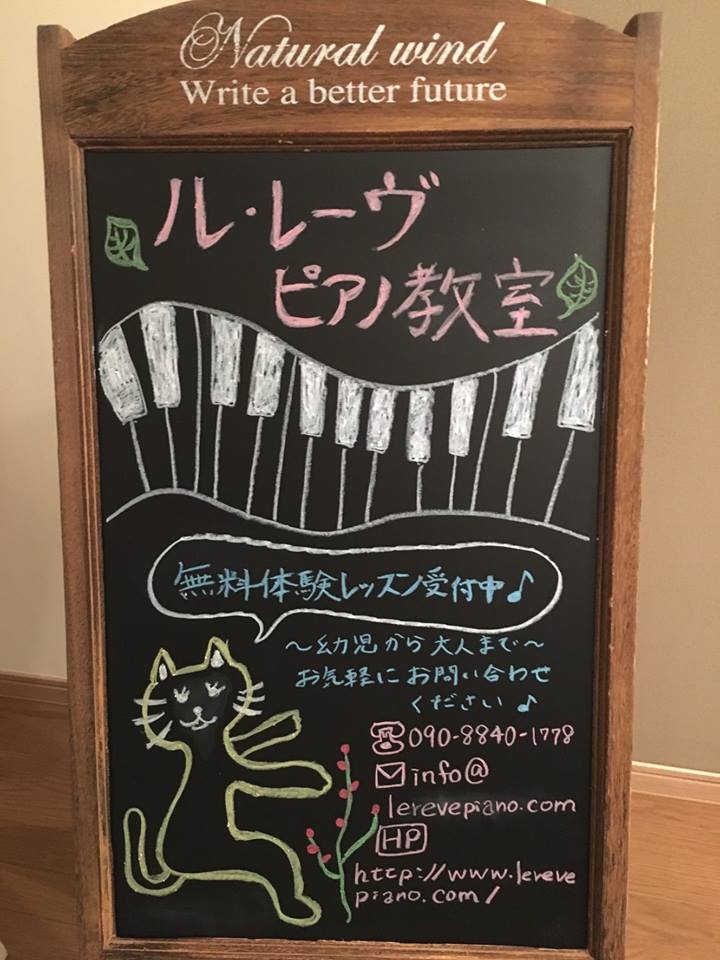 Natural wind
Write a better future
ル・レーヴ
ピアノ教室
無料体験レッスン受付中♪
～幼児から大人まで～
お気軽にお問い合わせ
ください♪
☎090-8840-1778
✉info@
lerevepiano.com
HP
http://www.lereve
piano.com/